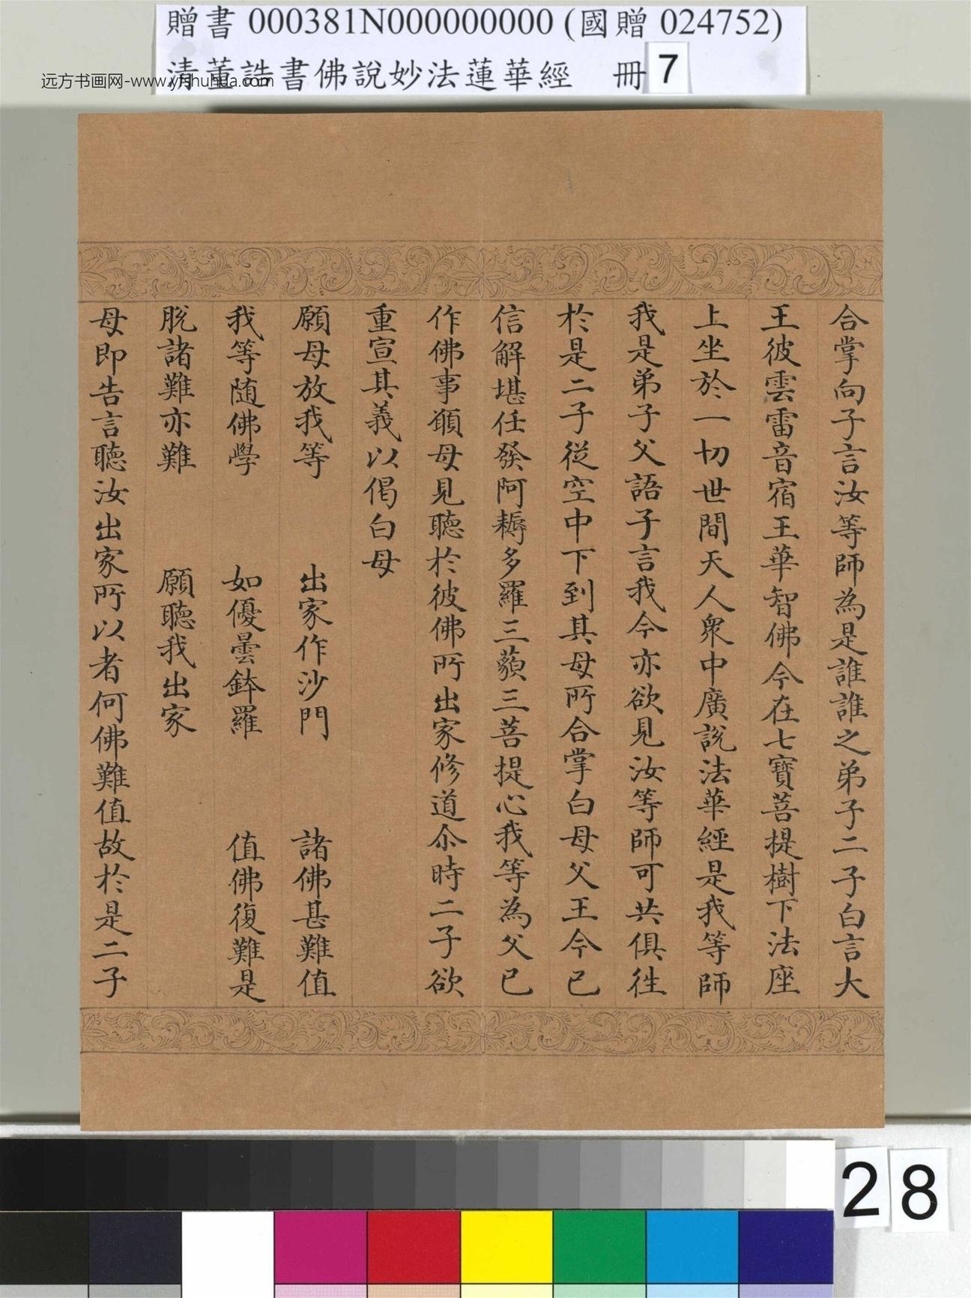 贈書 000381N000000000 (國贈 024752)
清董誥書佛說妙法蓮華經 冊 7
远方书画网-www.yfshuhua.com
合掌向子言汝等師為是誰誰之弟子二子白言大
王彼雲雷音宿王華智佛今在七寶菩提樹下法座
上坐於一切世間天人衆中廣説法華經是我等師
我是弟子父語子言我今亦欲見汝等師可共俱徃
於是二子從空中下到其母所合掌白母父王今已
信解堪任發阿耨多羅三藐三菩提心我等為父已
作佛事願母見聽於彼佛所出家修道尒時二子欲
重宣其義以偈白母
願母放我等 出家作沙門 諸佛甚難值
我等随佛學 如優曇鉢羅 值佛復難是
脫諸難亦難 願聽我出家
母即告言聽汝出家所以者何佛難值故於是二子
28